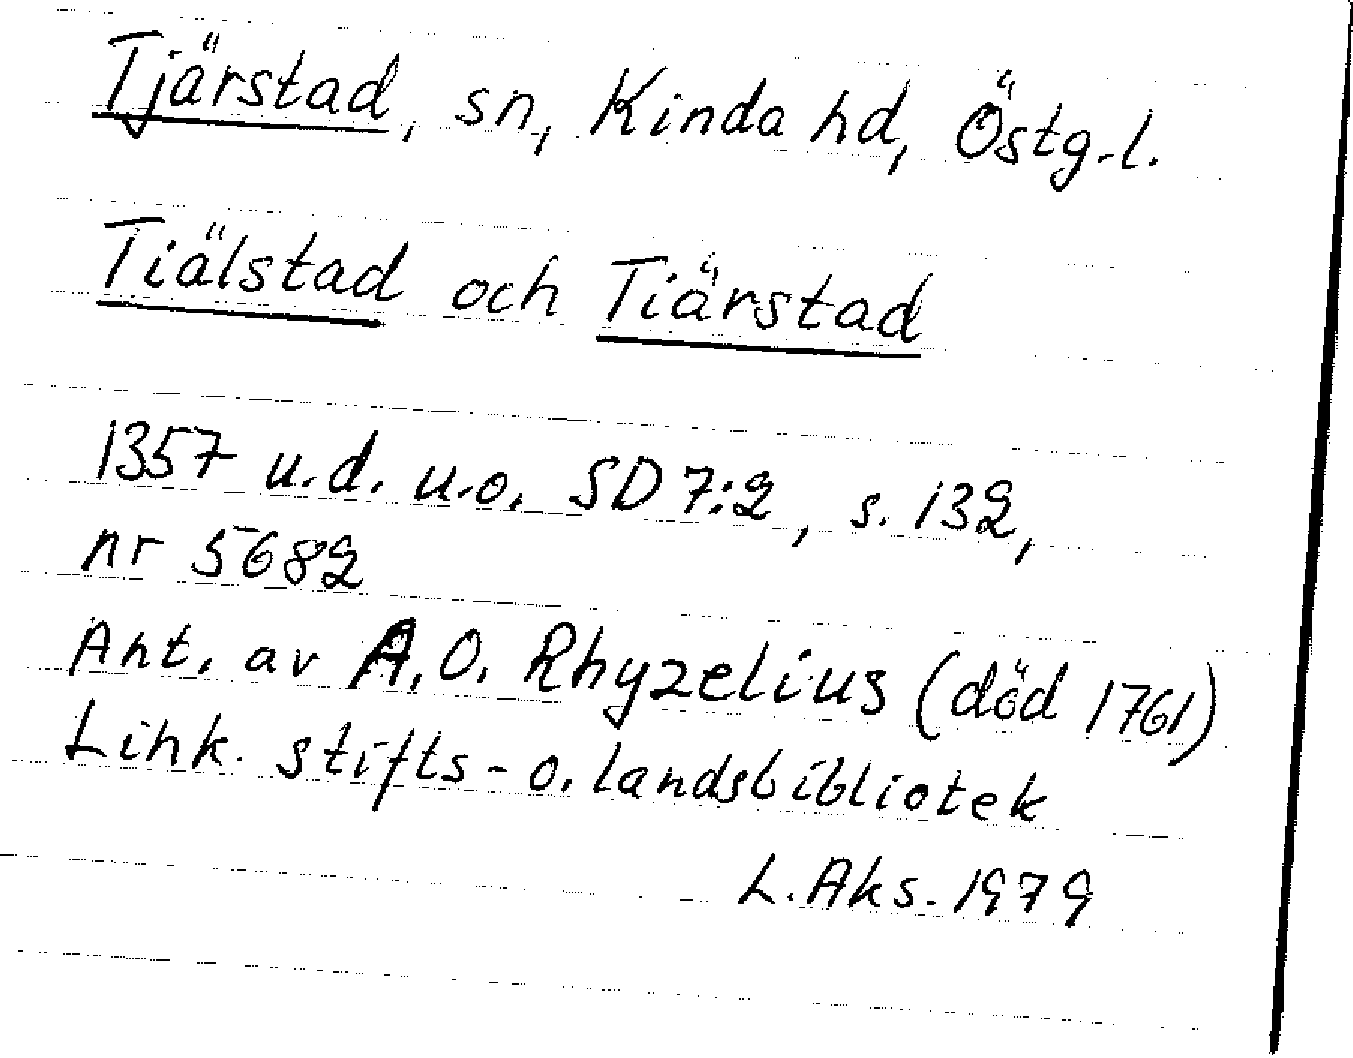 Tjärstad, sn, Kinda hd, Östg.l.
Tiälstad och Tiärstad
1357 u.d. u.o. SD 7:2, s. 132,
nr 5682
Ant. av A.O. Rhyzelius (död 1761)
Link. stifts- o. landsbibliotek
L.Aks. 1979